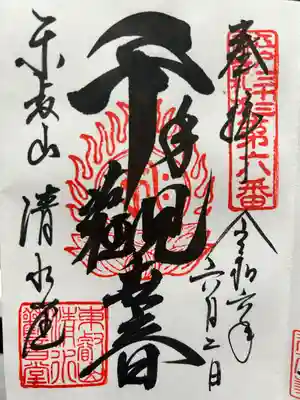 江戸三十三第六番
奉拝
令和六年
六月二日
千手觀音
東叡山
清水堂
東叡山
清水
觀音堂